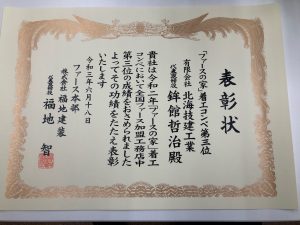 表彰状
「ファースの家」着工コンペ第三位
有限会社 北海技建工業
代表取締役 鉾館哲治殿
貴社は令和二年「ファースの家」着工
コンペにおいて全国ファース加盟工務店中
第三位の成績をおさめられました
よってその功績をたたえ表彰
いたします
令和三年六月十八日
ファース本部
株式会社 福地建装
代表取締役 福地 智